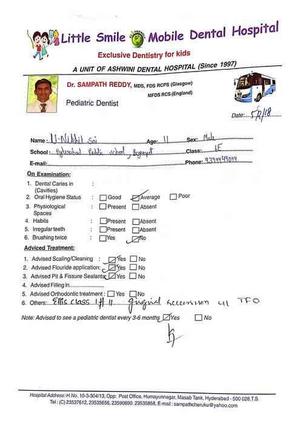 Little Smile Mobile Dental Hospital
Exclusive Dentistry for kids
A UNIT OF ASHWINI DENTAL HOSPITAL (Since 1997)
Dr. SAMPATH REDDY, MDS, FDS RCPS (Glasgow)
MFDS RCS (England)
Pediatric Dentist
Date:
Name: Age: 11 Sex: Male
School: Hyderabad Public school, Class:
E-mail: Phone:
On Examination:
1. Dental Caries in :
(Cavities)
2. Oral Hygiene Status : Good Average Poor
3. Physiological : Present Absent
Spaces
4. Habits : Present Absent
5. Irregular teeth : Present Absent
6. Brushing twice : Yes No
Advised Treatment:
1. Advised Scaling/Cleaning : Yes No
2. Advised Flouride application: Yes No
3. Advised Pit & Fissure Sealants: Yes No
4. Advised Filling in
5. Advised Orthodontic treatment : Yes No
6. Others: Ellis class recession TFO
Note: Advised to see a pediatric dentist every 3-6 months Yes No
Hospital Address: H.No. 10-3-304/13, Opp: Post Office, Humayunnagar, Masab Tank, Hyderabad - 500 028.T.S.
Tel : (C) 23537612, 23535656, 23590690, 23535858, E-mail : sampathcheruku@yahoo.com